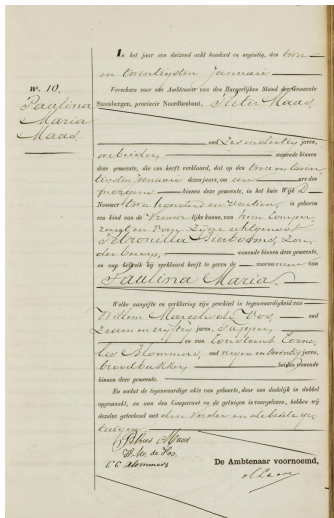 In het jaar een duizend acht honderd en negentig, den twee
en twintigsten Januari
No. 10.
Paulina
Maria
Maas
Verscheen voor ons Ambtenaar van den Burgerlijken Stand der Gemeente
Steenbergen, provincie Noordbrabant, Pieter Maas,
oud Zes en dertig jaren,
arbeider wonende binnen
deze gemeente, die aan heeft verklaard, dat op den twee en twin
tigsten Januari dezes jaars, om een ure des
morgens binnen deze gemeente, in het huis Wijk D
Nummer twee honderd en veertien, is geboren
een kind van de Vrouwelijke kunne, van hem Compa
rant en van zijne echtgenoot
Petronella
der beroep, wonende binnen deze gemeente,
en nog heeft hij verklaard heeft te geven de voornamen van
Paulina Maria.
Welke aangifte en verklaring zijn geschied in tegenwoordigheid van
Willem Marcelis de Vos, oud
jaren,
en van Constant Corne
lis Blommers, oud negen en twintig jaren,
broodbakker, beiden wonende
binnen deze gemeente.
En midats de tegenwoordige akte van geboorte, daar van dadelijk in dubbel
opgemaakt, en aan den Comparant en de getuigen is voorgelezen, hebben wij
dezelve geteekend met den Vader en de beide ge
tuigen
Petrus Maas
W. M. de Vos
C C Blommers
De Ambtenaar voornoemd,